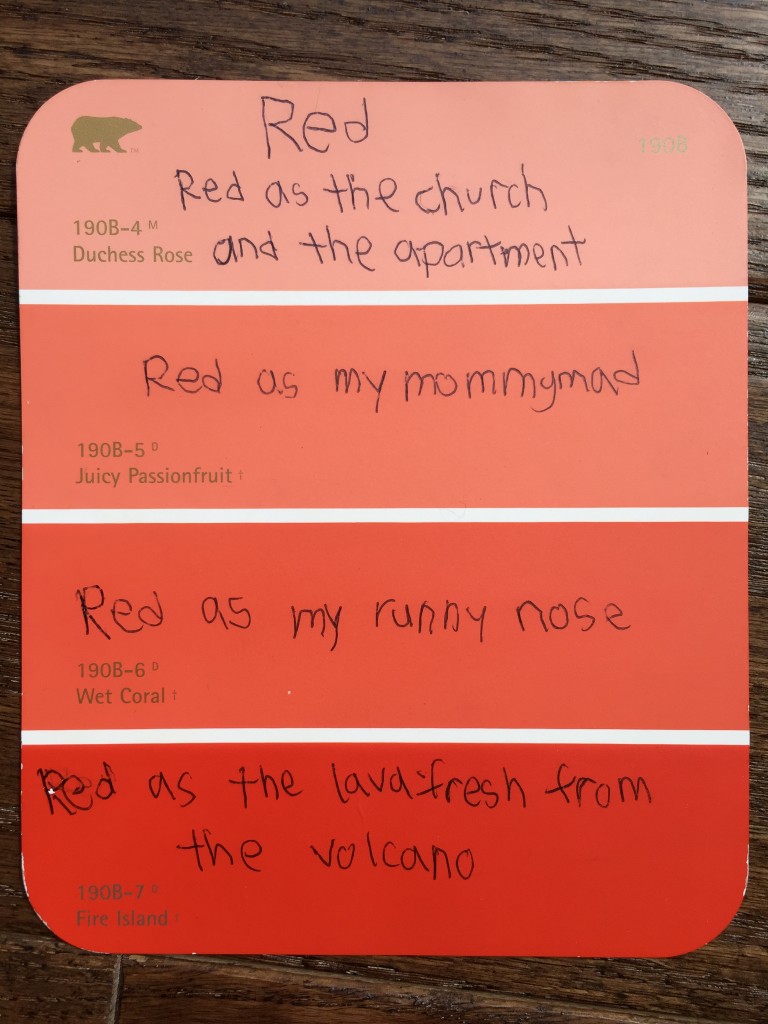 Red
190B
Red as the church
190B-4 M
and the apartment
Duchess Rose
Red as my mommymad
190B-5 D
Juicy Passionfruit †
Red as my runny nose
190B-6 D
Wet Coral †
Red as the lava fresh from
the volcano
190B-7 D
Fire Island †